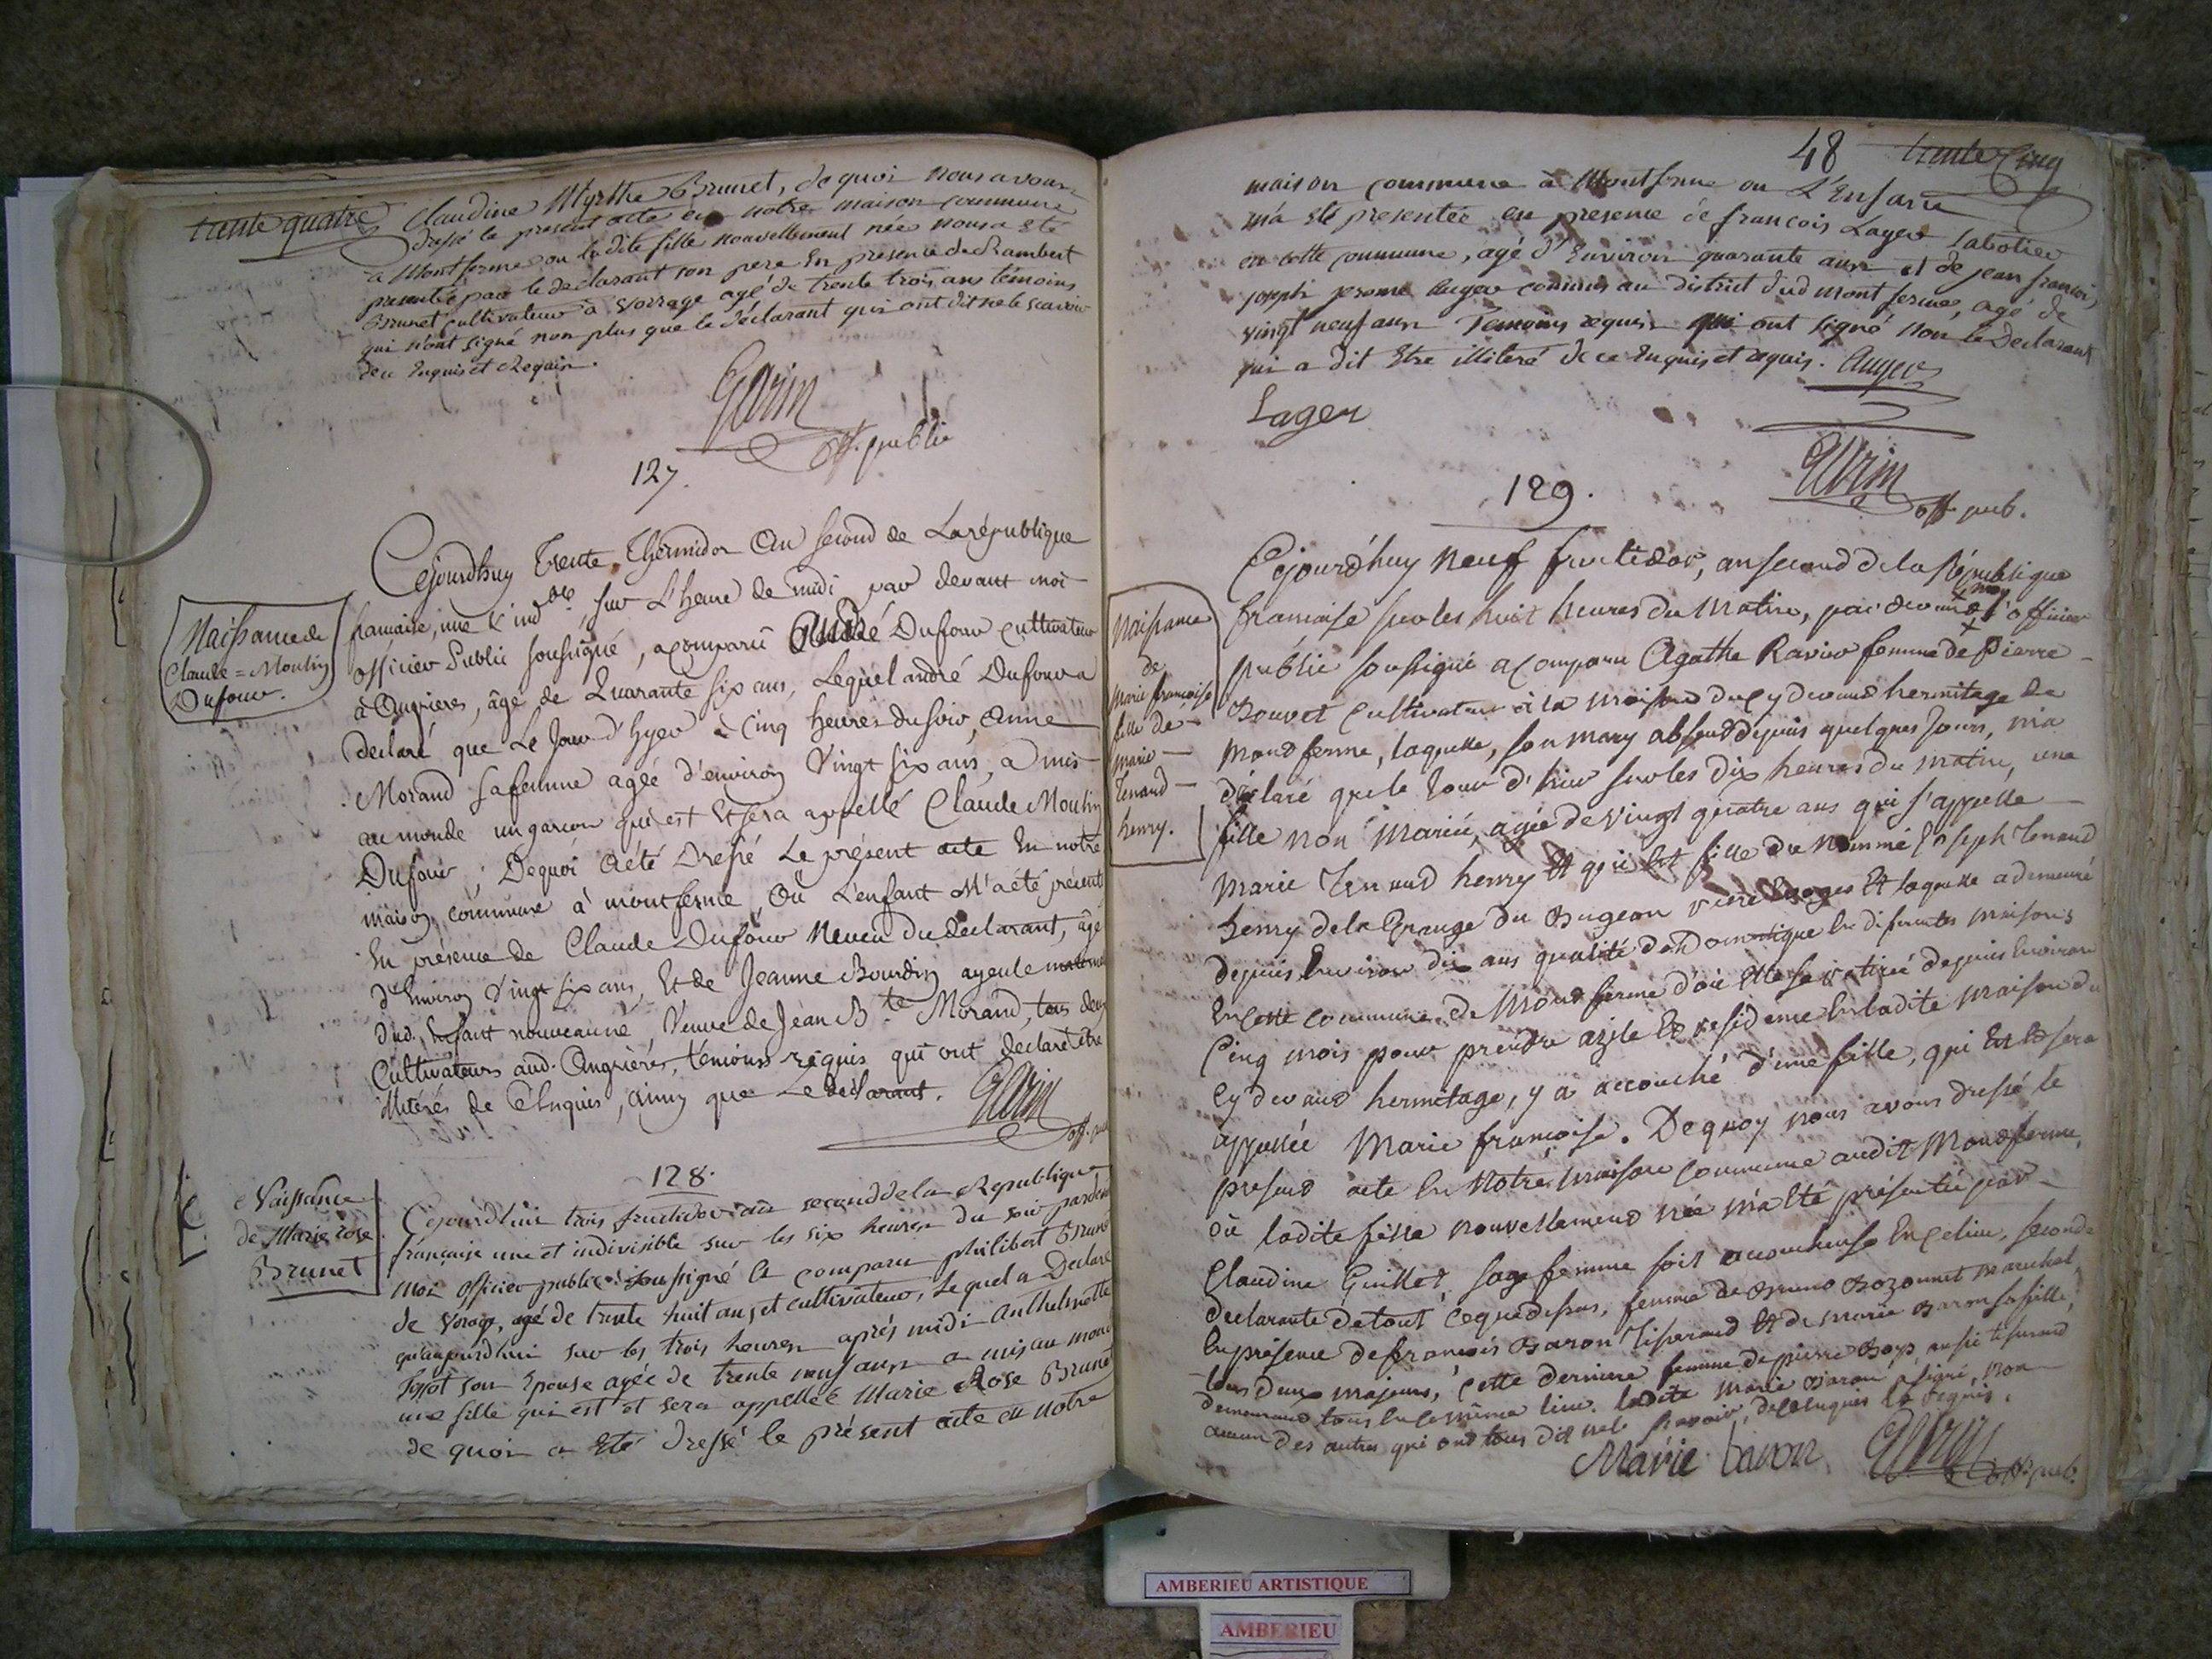 trente quatre
Claudine Myrthe Brunet, de quoi nous avons
dressé le present acte en notre maison commune
à Montferme ou ladite fille nouvellement née nous a eté
presentée par le declarant son pere En presence de Rambert
Brunet cultivateur à Vorage agé de trente trois ans témoins
qui n'ont signé non plus que le déclarant qui ont dit ne le scavoir
de ce Enquis et Requis.
Garin
off. public
127.
Naissance de
Claude = Moulin
Dufour.
Cejourdhuy trente Thermidor an second de La république
francaise, une & ind.ble, sur L'heure de midi par devant moi
officier Public soussigné, a comparu André Dufour cultivateur
à Angrieres, âgé de Quarante six ans, Lequel andré Dufour a
declaré que Le Jour d'hyer à Cinq heures du soir, Anne
Morand sa femme agée d'environ Vingt six ans, a mis
au monde un garcon qui est et sera appellé Claude Moulin
Dufour; Dequoi a été Dressé Le présent acte En notre
maison commune à montferme, Où L'enfant M'a été présenté
En présence de Claude Dufour Neveu du declarant, âgé
d'Environ Vingt six ans, Et de Jeanne Bourdin ayeule maternelle
dud. Enfant nouveau né Veuve de Jean B.te Morand, tous deux
Cultivateurs aud. Angrieres, témoins requis qui ont declaré être
illitérés de ce Enquis, ainsy que Le declarant.
Garin
off. pub
128.
Naissance
de Marie rose
Brunet
Cejourdhui trois fructidor an second de la Republique
française une et indivisible sur les six heures du soir pardevant
Moi officier public soussigné a comparu philibert Brunet
de Vorage, agé de trente huit ans et cultivateur, Lequel a Declaré
qu'aujourdhui sur les trois heures après midi Anthelmette
son Epouse agée de trente neuf ans a mis au monde
une fille qui est et sera appellée Marie Rose Brunet
de quoi a Eté dressé le présent acte en notre
48 trente Cinq
maison commune à Montferme ou L'Enfant
m'a eté presentée en presence de francois Lager sabotier
en cette commune, agé d'Environ quarante ans et de jean francois
joseph jerome Auger commis au district dud montferme, agé de
vingt neuf ans Temoins requis qui ont signé non le Declarant
qui a dit Etre illiteré de ce Enquis et requis. Auger
Lager
Garin
off. pub.
129.
Naissance
de
Marie françoise
fille de
marie
Tenand
henry.
Cejourd'huy neuf fructidor, an second de la République
francaise sur les huit heures du Matin, par devant moy l'officier
public soussigné a comparu Agathe Ravier femme de Pierre
Bouvet Cultivateur à la maison du cy devant hermitage de
Montferme, laquelle, son mary absent depuis quelques Jours, m'a
déclaré que le Jour d'hier sur les dix heures du matin, une
fille non mariée, agée de vingt quatre ans qui s'appelle
Marie Tenand henry Et qui Est fille du Nommé Joseph Tenand
henry de la Grange du Bugeon Et laquelle a demeuré
depuis Environ dix ans qualité de Domestique En diferentes maisons
En cette commune de Montferme d'où elle s'est retirée depuis Environ
Cinq mois pour prendre azile Et residence En ladite maison du
Cy devant hermitage, y a accouché d'une fille, qui Est Et sera
appellée Marie françoise. De quoy nous avons dressé le
present acte En Notre maison commune audit Montferme,
où ladite fille nouvellement née m'a Eté présentée par
Claudine Guillet, sage femme soit accoucheuse En ce lieu, seconde
declarante de tout ce que dessus, femme de Bruno Bozonnet marechal,
En présence de françois Baron Tisserand Et de marie Baron sa fille,
tous deux majeurs, cette derniere femme de pierre aussi tisserand
demeurant tous En ce même lieu. ladite Marie Baron a signé, non
aucun des autres qui ont tous dit ne le scavoir, de ce Enquis Et requis.
Marie baron
Garin
off. pub.
AMBERIEU ARTISTIQUE
AMBERIEU